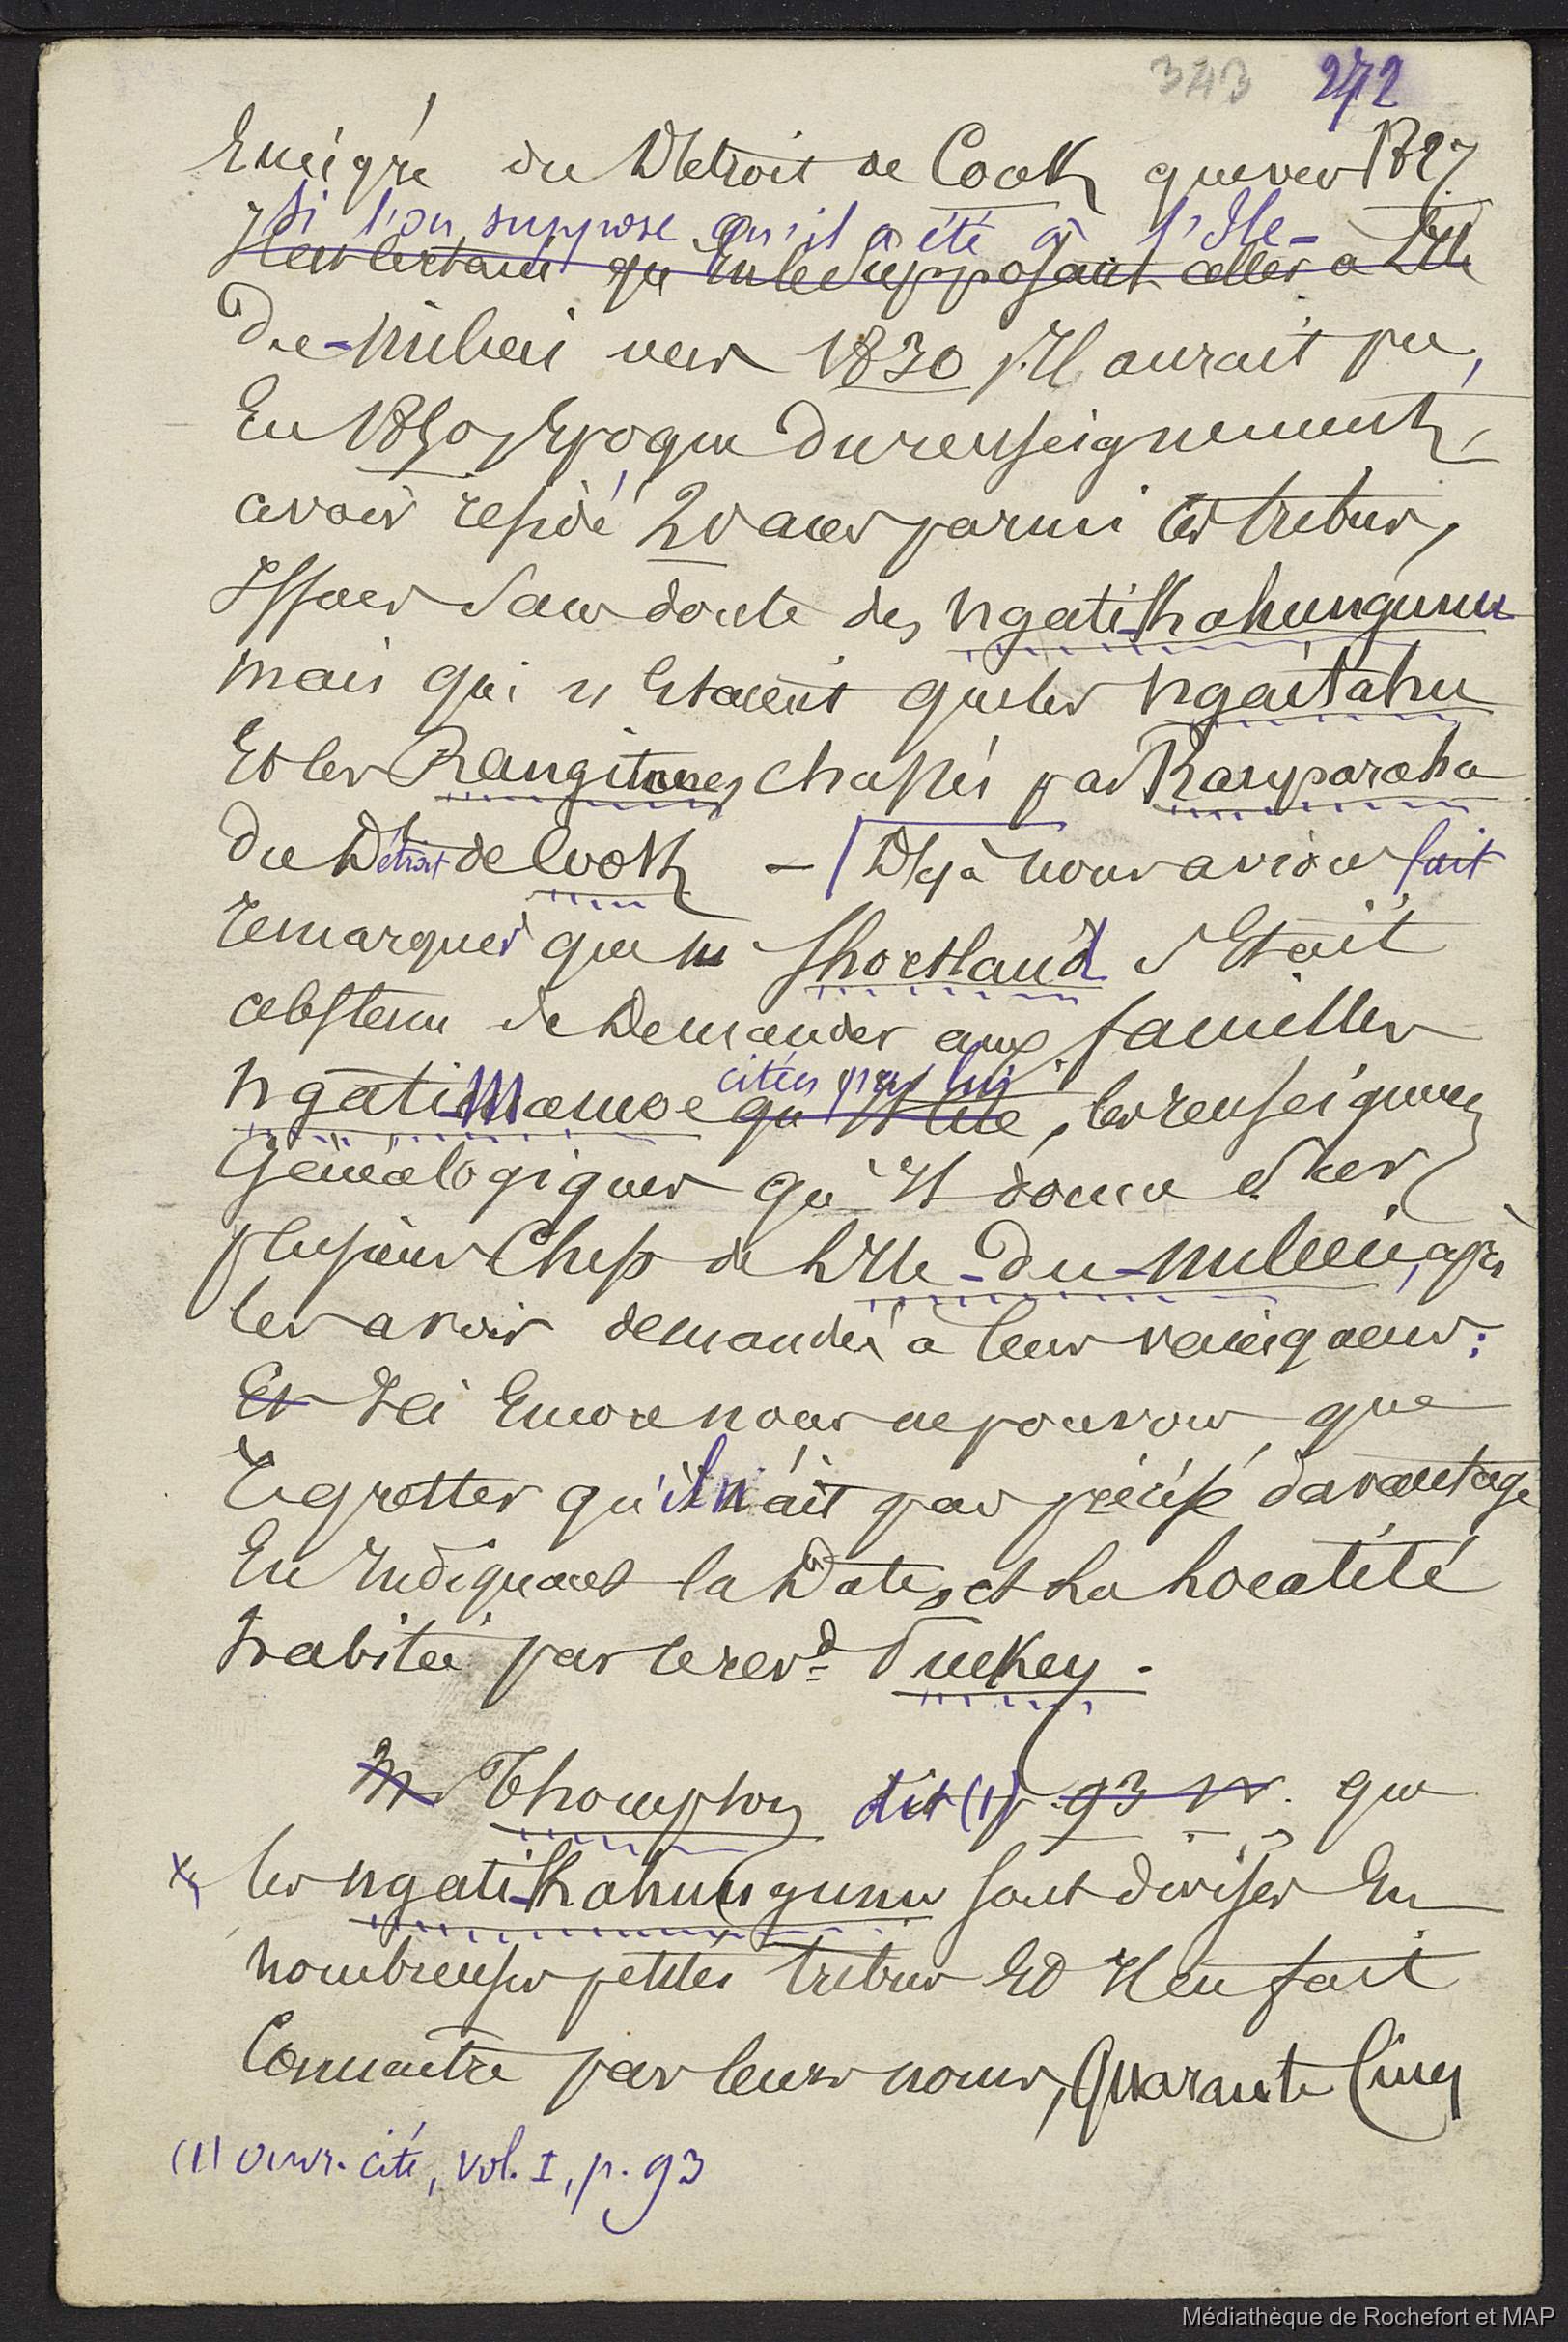 343 272
Emigré du Détroit de Cook que vers 1827
si l'on suppose qu'il a été à l'Ile-
Il est certain qu'En le Supposant aller à l'Ile
du-milieu vers 1830, Il aurait pu,
En 1850, Epoque du renseignement,
avoir résidé 20 ans parmi les tribus,
Issues Sans doute des ngati-Kahungunu
mais qui n'Etaient que les ngaïtahu
Et les Rangitane, chassés par Rauparaha
du Détroit de Cook — Déjà nous avions fait
remarquer que M Shortland s'Etait
abstenu de Demander aux familles
ngati-Mamoe citées par lui qu'Il cite, les renseignem
Généalogiques qu'Il donne Sur
plusieurs Chefs de L'Ile-du-milieu, après
les avoir demandés à leurs vainqueurs:
Et Ici Encore nous ne pouvons que
regretter qu'il n'ait pas précisé davantage
En Indiquant la Date, et La Localité
habitée par le revd Puckey.
Mr Thompson dit (1) p. 93 que
les ngati-Kahungunu sont divisés En
nombreuses petites tribus Et Il en fait
Connaître par leurs noms, Quarante Cinq
(1) ouvr. cité, vol. I, p. 93
Médiathèque de Rochefort et MAP